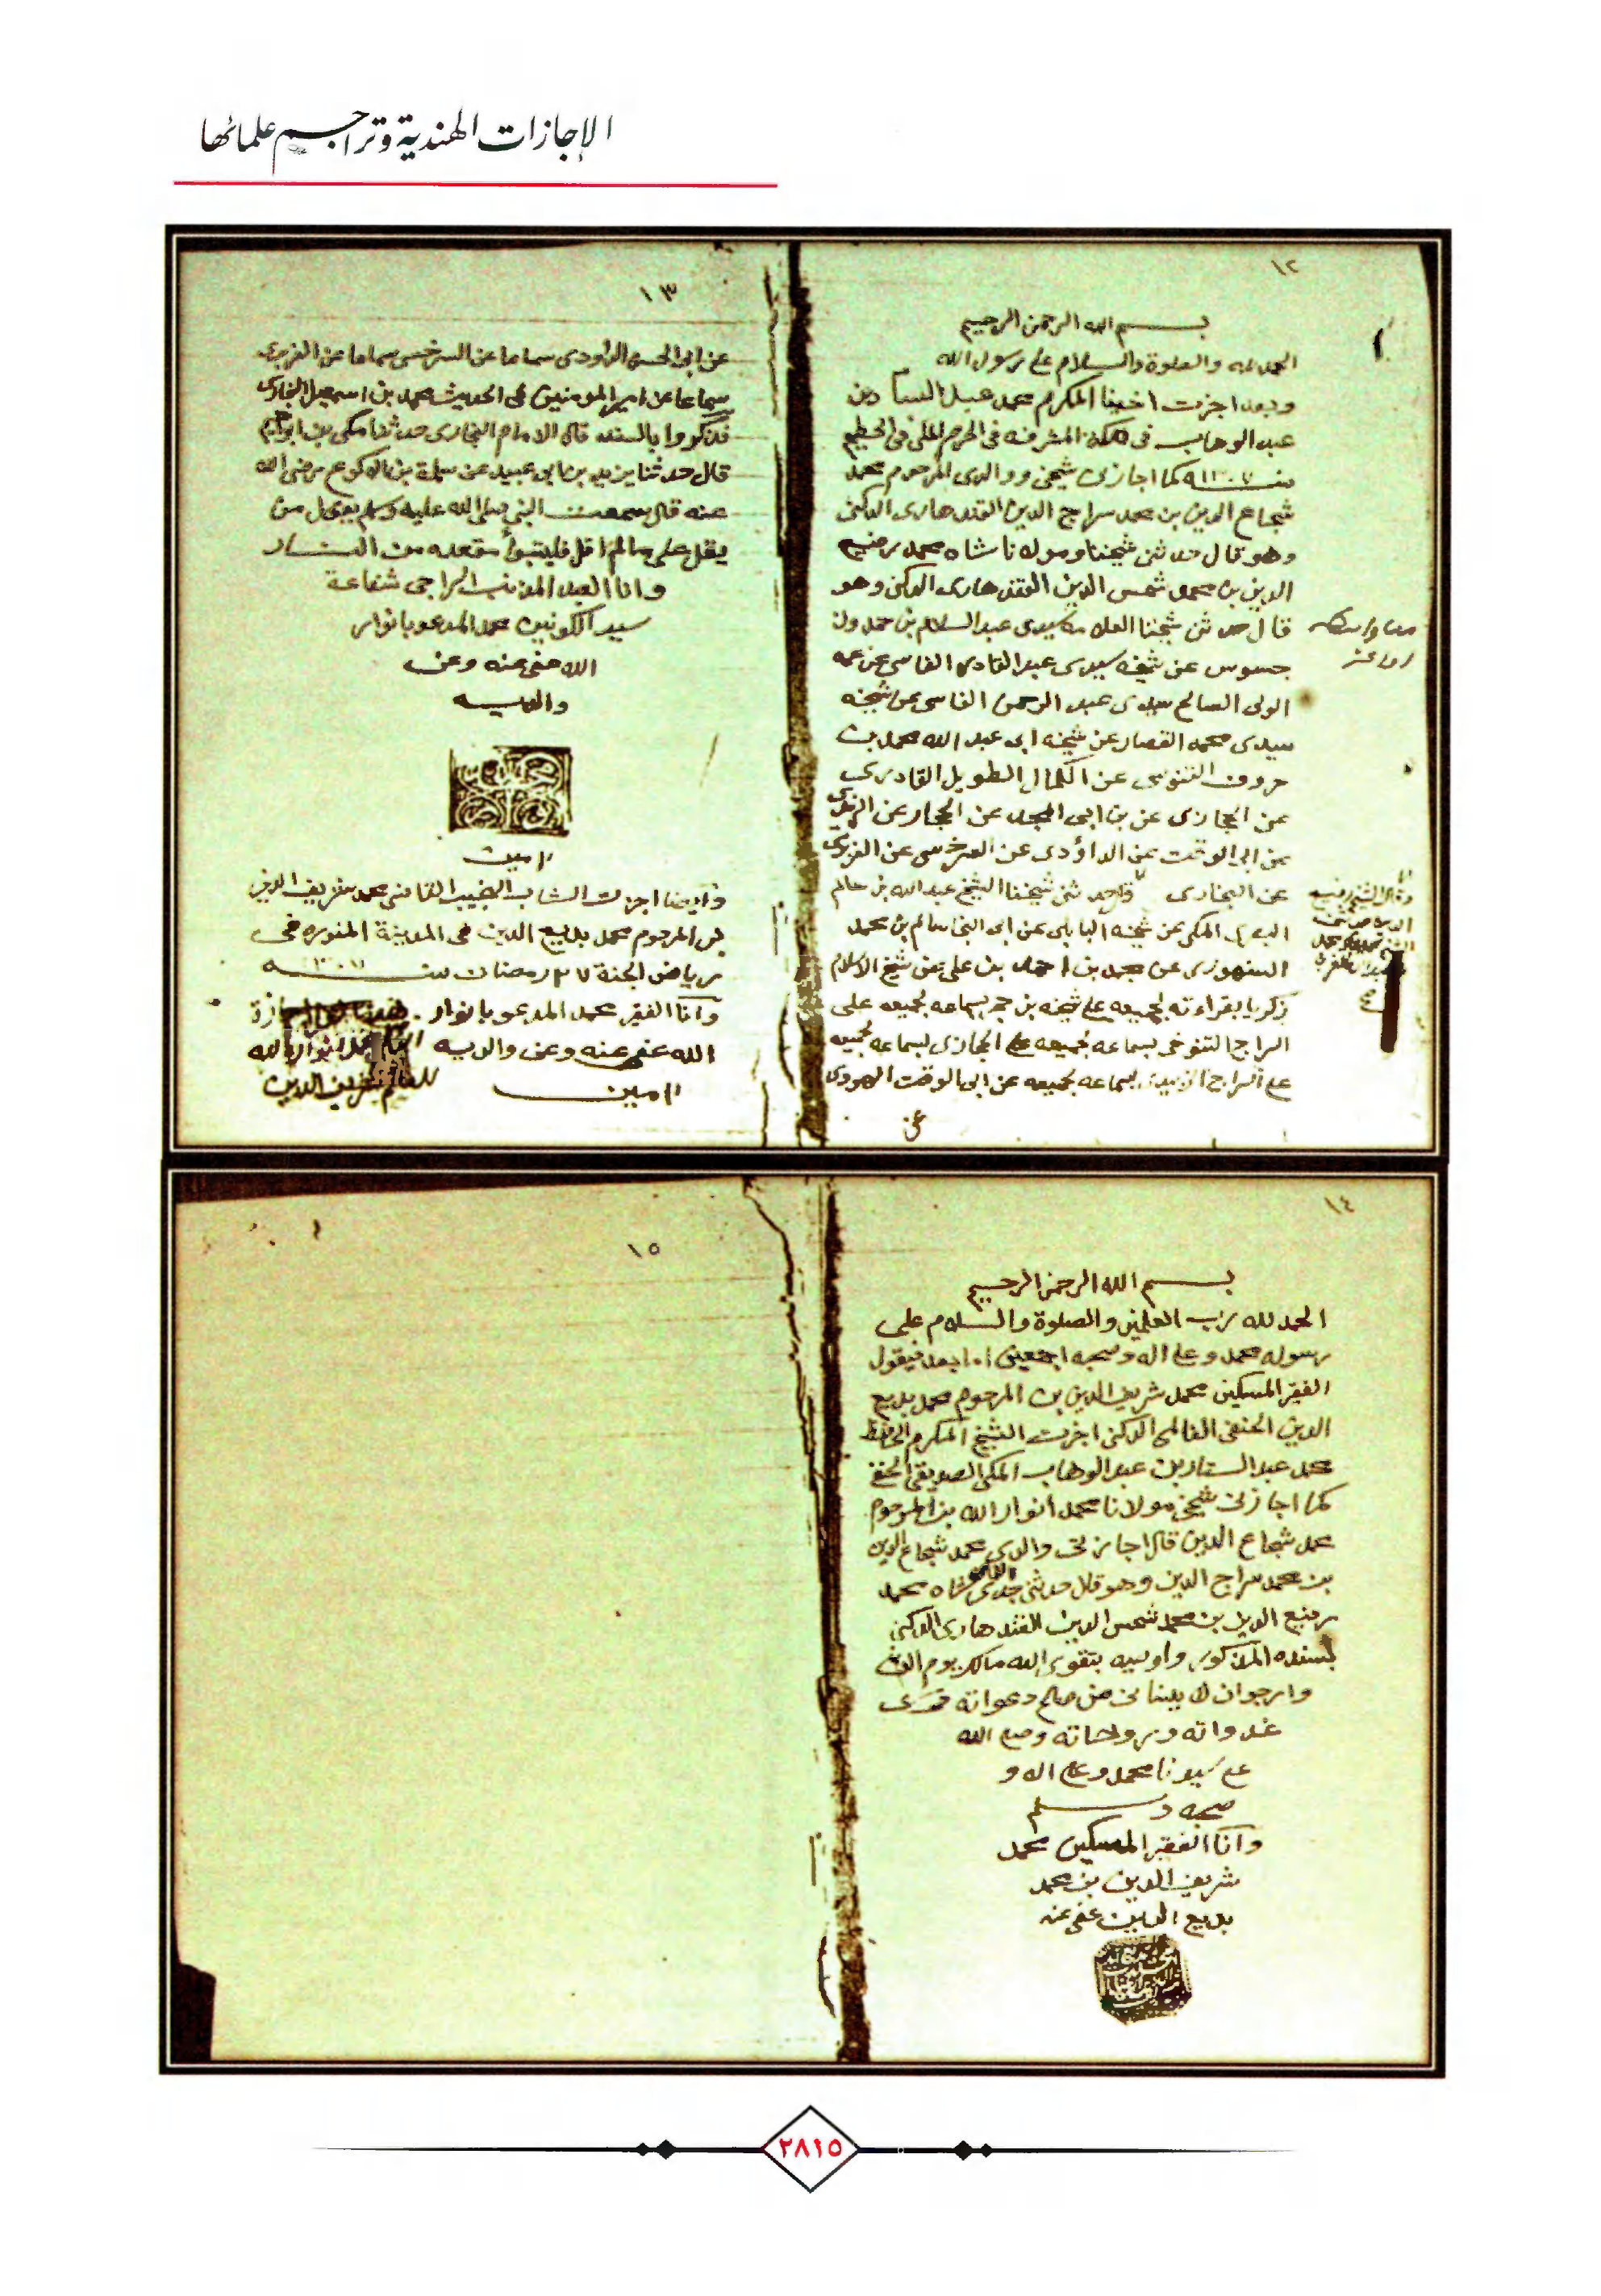 الإجازات الهندية وتراجم علمائها
١٢
بسم الله الرحمن الرحيم
الحمد لله والصلوة والسلام على رسول الله
وبعد اجزت اخينا المكرم محمد عبد الستار بن
عبد الوهاب في مكة المشرفه في الحرم المكي في الحطيم
سنه ١٣٠٧ كما اجازني شيخي ووالدي المرحوم محمد
شجاع الدين بن محمد سراج الدين القندهاري الدكني
وهو قال حدثني شيخنا ومولانا شاه محمد رفيع
الدين بن محمد شمس الدين القندهاري الدكني وهو
قال حدثني شيخنا العلامة سيدي عبد السلام بن حمدون
جسوس عن شيخه سيدي عبد القادر الفاسي عن عمه
الولي الصالح سيدي عبد الرحمن الفاسي عن شيخه
سيدي محمد القصار عن شيخه ابي عبد الله محمد بن
خروف التنوسي عن الكمال الطويل القادري
عن الحجازي عن بن ابي المجد عن الحجار عن الزبيدي
عن ابي الوقت عن الداؤدي عن السرخسي عن الفربري
عن البخاري وحدثني شيخنا الشيخ عبد الله بن سالم
البصري المكي عن شيخه البابلي عن ابي النجا سالم بن محمد
السنهوري عن محمد بن احمد بن علي عن شيخ الاسلام
زكريا بقراءته لجميعه على شيخه بن حجر بسماعه لجميعه على
السراج التنوخي بسماعه لجميعه على الحجازي بسماعه لجميعه
على السراج الزبيدي بسماعه لجميعه عن ابي الوقت الهروي
عن
١٣
عن ابي الحسن الداودي سماعا عن السرخسي سماعا عن الفربري
سماعا عن امير المومنين في الحديث محمد بن اسمعيل البخاري
فذكروا بالسند قال الامام البخاري حدثنا مكي بن ابراهيم
قال حدثنا يزيد بن ابي عبيد عن سلمة بن الاكوع رضي الله
عنه قال سمعت النبي صلى الله عليه وسلم يقول من
يقل علي ما لم اقل فليتبوأ مقعده من النار
وانا العبد المذنب الراجي شفاعة
سيد الكونين محمد المدعو بانوار
الله عفى عنه وعن
والديه
امين
وايضا اجزت الشاب النجيب القاضي محمد شريف الدين
بن المرحوم محمد بديع الدين في المدينة المنوره في
رياض الجنة ٢٧ رمضان سنه ١٣٠٧
وانا الفقير محمد المدعو بانوار
الله عفى عنه وعن والديه
امين
١٤
بسم الله الرحمن الرحيم
الحمد لله رب العلمين والصلوة والسلام على
رسوله محمد وعلى اله وصحبه اجمعين اما بعد فيقول
الفقير المسكين محمد شريف الدين بن المرحوم محمد بديع
الدين الحنفي الدكني اجزت الشيخ المكرم الحافظ
محمد عبد الستار بن عبد الوهاب المكي الصديقي الحنفي
كما اجازني شيخي مولانا محمد انوار الله بن المرحوم
محمد شجاع الدين قال اجازني والدي محمد شجاع الدين
بن محمد سراج الدين وهو قال حدثني جدي شاه محمد
رفيع الدين بن محمد شمس الدين القندهاري الدكني
بسنده المذكور واوصيه بتقوى الله مالك يوم الدين
وارجو ان لا ينساني من صالح دعواته في
غدواته وروحاته وصلى الله
على سيدنا محمد وعلى اله و
صحبه وسلم
وانا الفقير المسكين محمد
شريف الدين بن محمد
بديع الدين عفي عنه
١٥
٢٨١٥